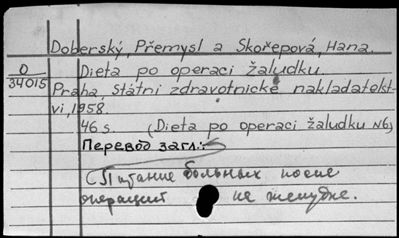 Doberský, Přemysl a Skořepová, Hana.
O
34015
Dieta po operaci žaludku.
Praha, Státní zdravotnické nakladatelst-
vi, 1958.
46 s. (Dieta po operaci žaludku N6)
Перевод загл.:
Питание больных после
операций на желудке.